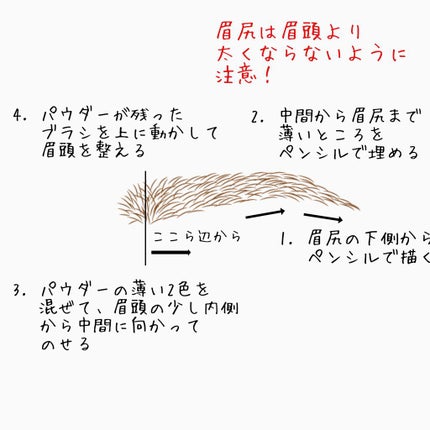 眉尻は眉頭より
太くならないように
注意!
4. パウダーが残った
ブラシを上に動かして
眉頭を整える
2. 中間から眉尻まで
薄いところを
ペンシルで埋める
ここら辺から
1. 眉尻の下側から
ペンシルで描く
3. パウダーの薄い2色を
混ぜて、眉頭の少し内側
から中間に向かって
のせる